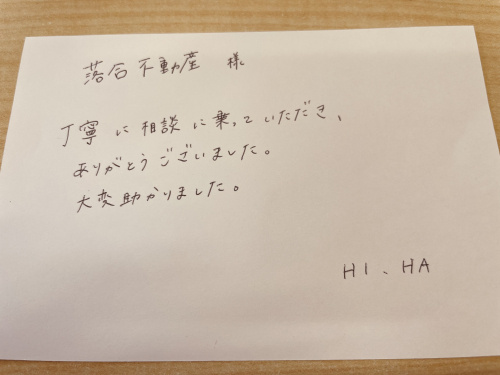 落合不動産 様
丁寧に相談に乗っていただき、
ありがとうございました。
大変助かりました。
HI、HA